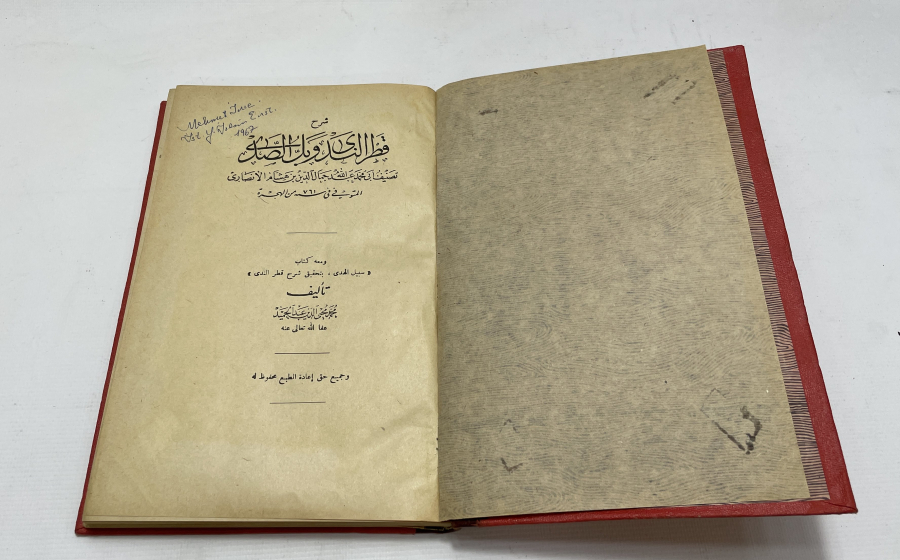 Mehmut
1967
شرح
قطر الندى وبل الصدى
تصنيف أبي محمد عبد الله جمال الدين بن هشام الأنصاري
المتوفى في سنة ٧٦١ من الهجرة
ومعه كتاب
« سبيل الهدى ، بتحقيق شرح قطر الندى »
تأليف
محمد محيي الدين عبد الحميد
عفا الله تعالى عنه
وجميع حق إعادة الطبع محفوظ له